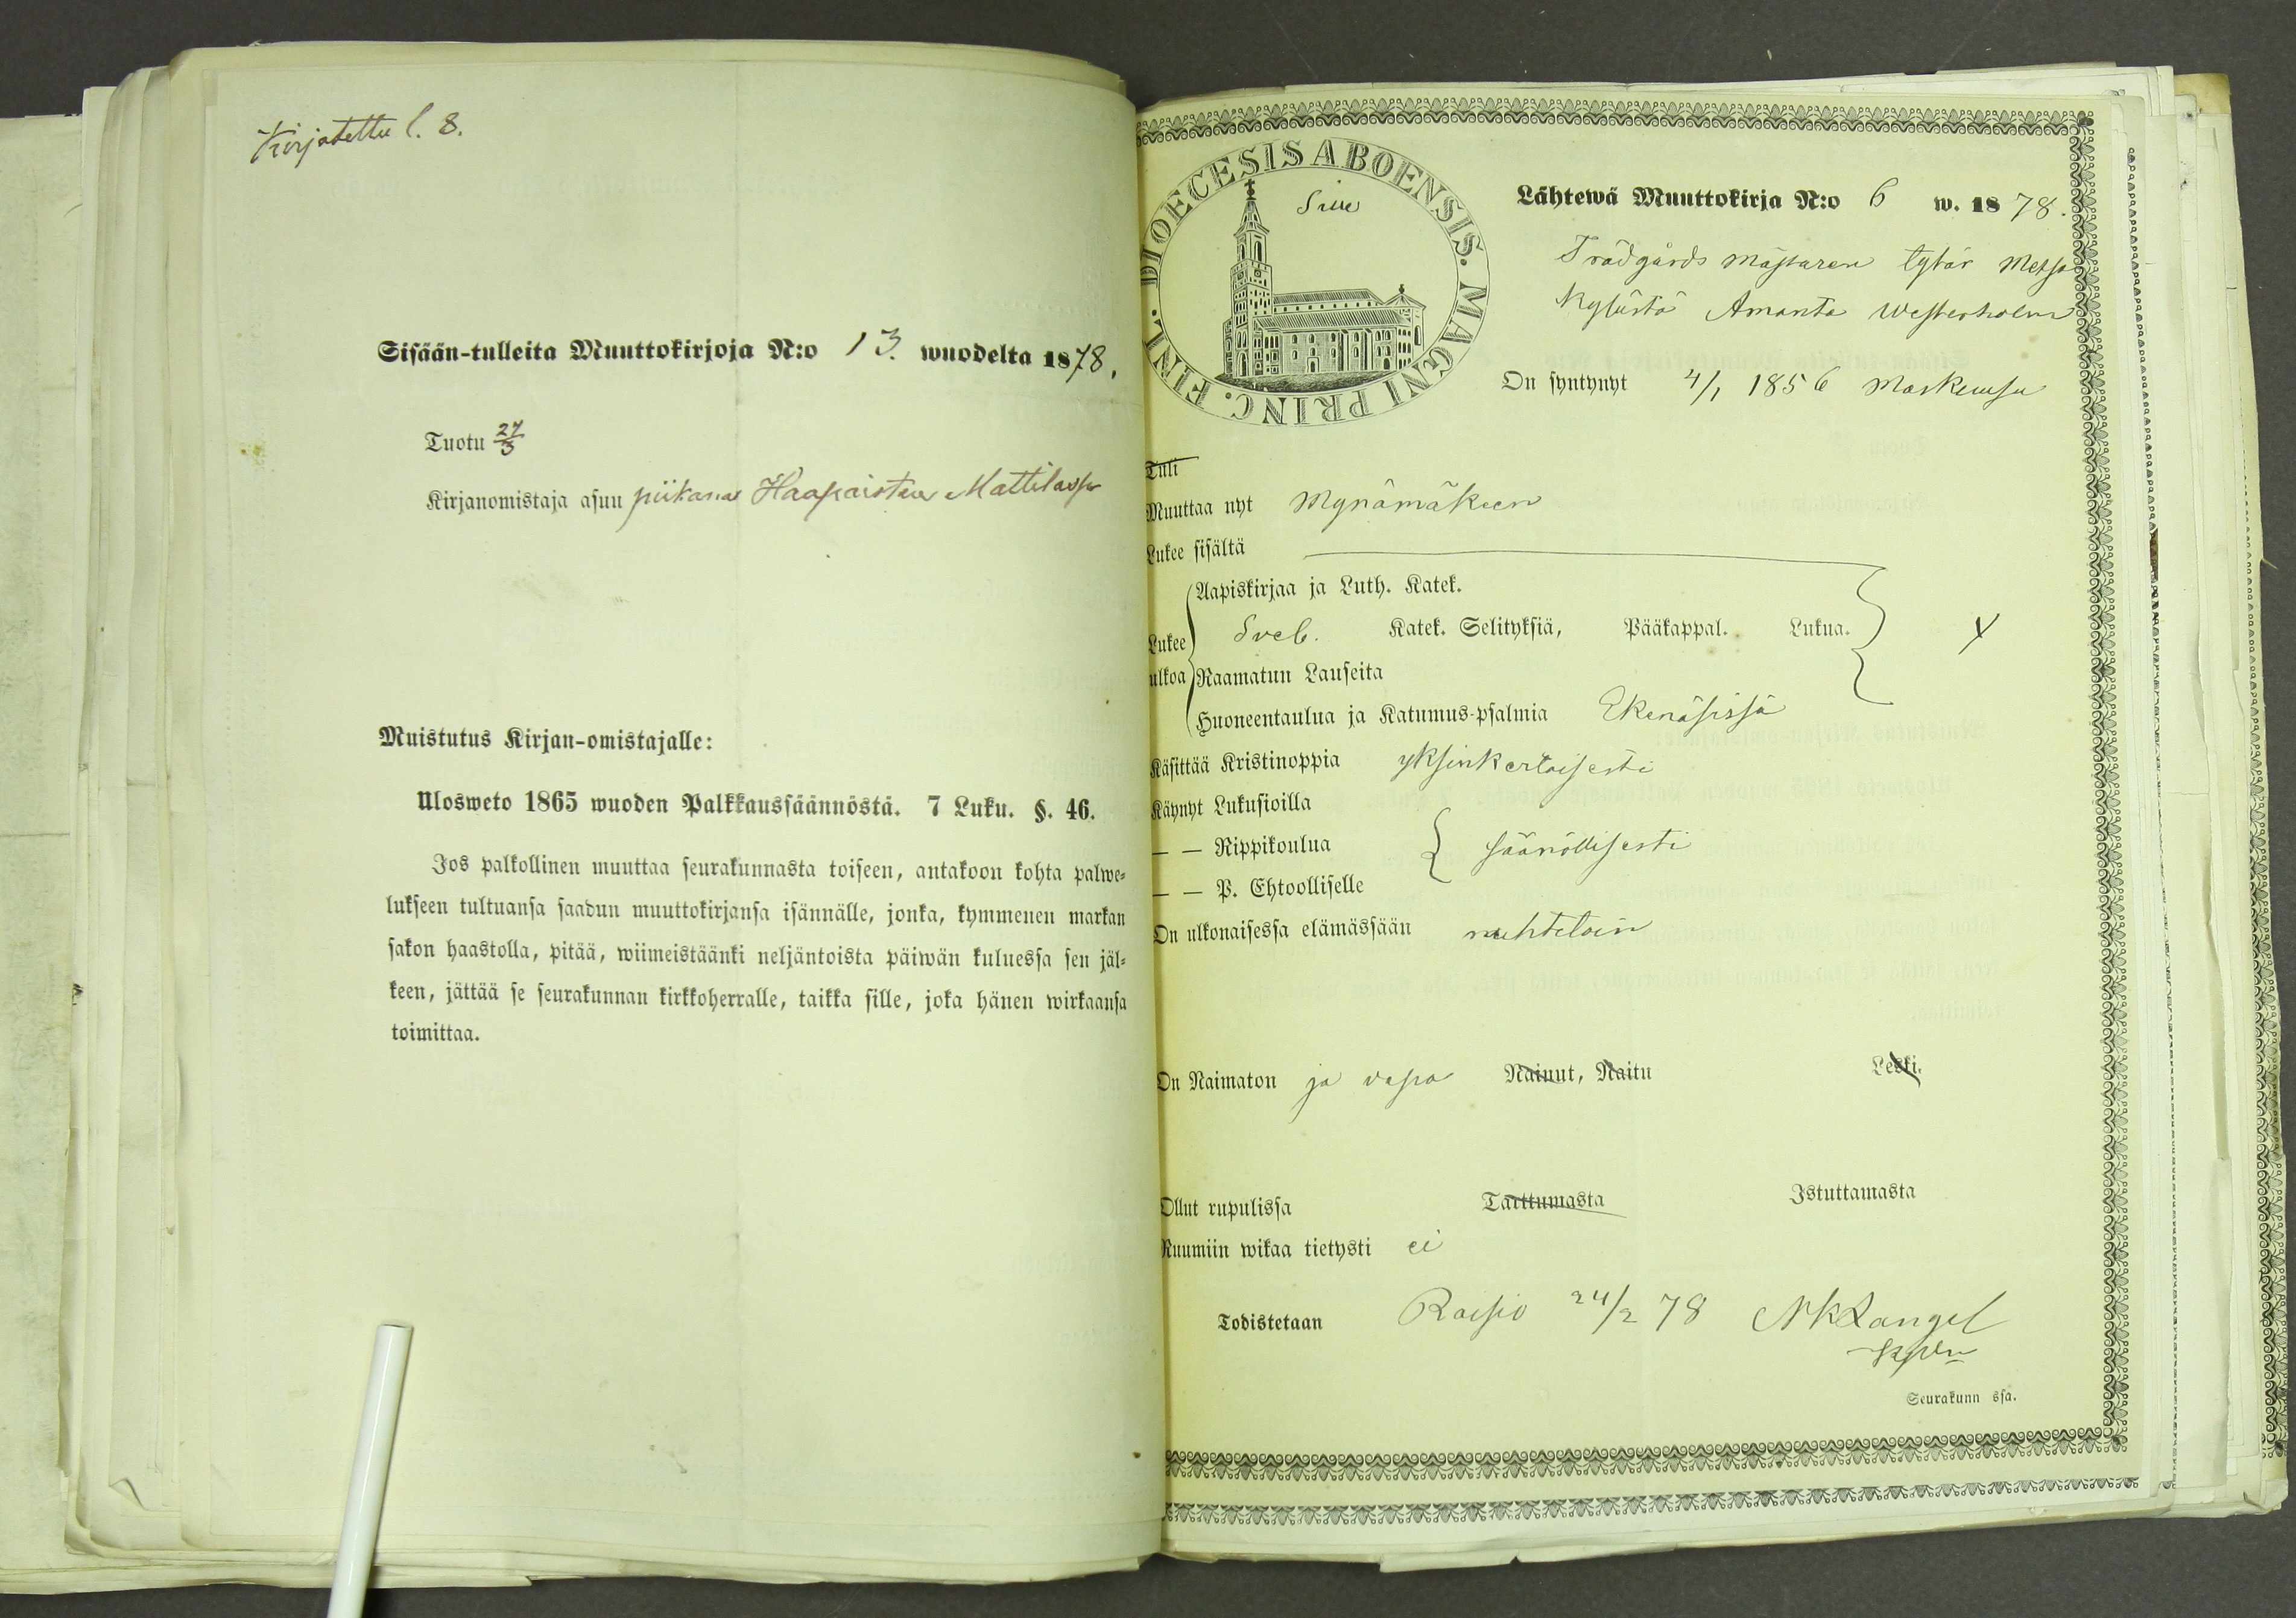 Kirjatettu l. 8.
Sisään-tulleita Muuttokirjoja N:o 13. wuodelta 1878.
Tuotu 27/3
Kirjanomistaja asuu piikana Haapaisten Mattilassa
Muistutus Kirjan-omistajalle:
Ulosweto 1865 wuoden Palkkaussäännöstä. 7 Luku. §. 46.
Jos palkollinen muuttaa seurakunnasta toiseen, antakoon kohta palwe-
lukseen tultuansa saadun muuttokirjansa isännälle, jonka, kymmenen markan
sakon haastolla, pitää, wiimeistäänki neljäntoista päiwän kuluessa sen jäl-
keen, jättää se seurakunnan kirkkoherralle, taikka sille, joka hänen wirkaansa
toimittaa.
DIOECESIS ABOENSIS. MAGNI PRINC. FINL.
Lähtewä Muuttokirja N:o 6 w. 1878.
Trädgårds mästaren tytär Metsä
kylästä Amanta Westerholm
On syntynyt 4/1 1856 Maskussa
Tuli
Muuttaa nyt Mynämäkeen
Lukee sisältä
Aapiskirjaa ja Luth. Katek.
Lukee Sveb. Katek. Selityksiä, Pääkappal. Lukua.
ulkoa Raamatun Lauseita
Huoneentaulua ja Katumus-psalmia Ekenäsissä
Käsittää Kristinoppia yksinkertaisesti
Käynyt Lukusioilla
— — Rippikoulua säänöllisesti
— — P. Ehtoolliselle
On ulkonaisessa elämässään nuhteloin
On Naimaton ja vapa Nainut, Naitu Leski.
Ollut rupulissa Tarttumasta Istuttamasta
Ruumiin wikaa tietysti ei
Todistetaan Raisio 24/2 78
Seurakunn ssa.